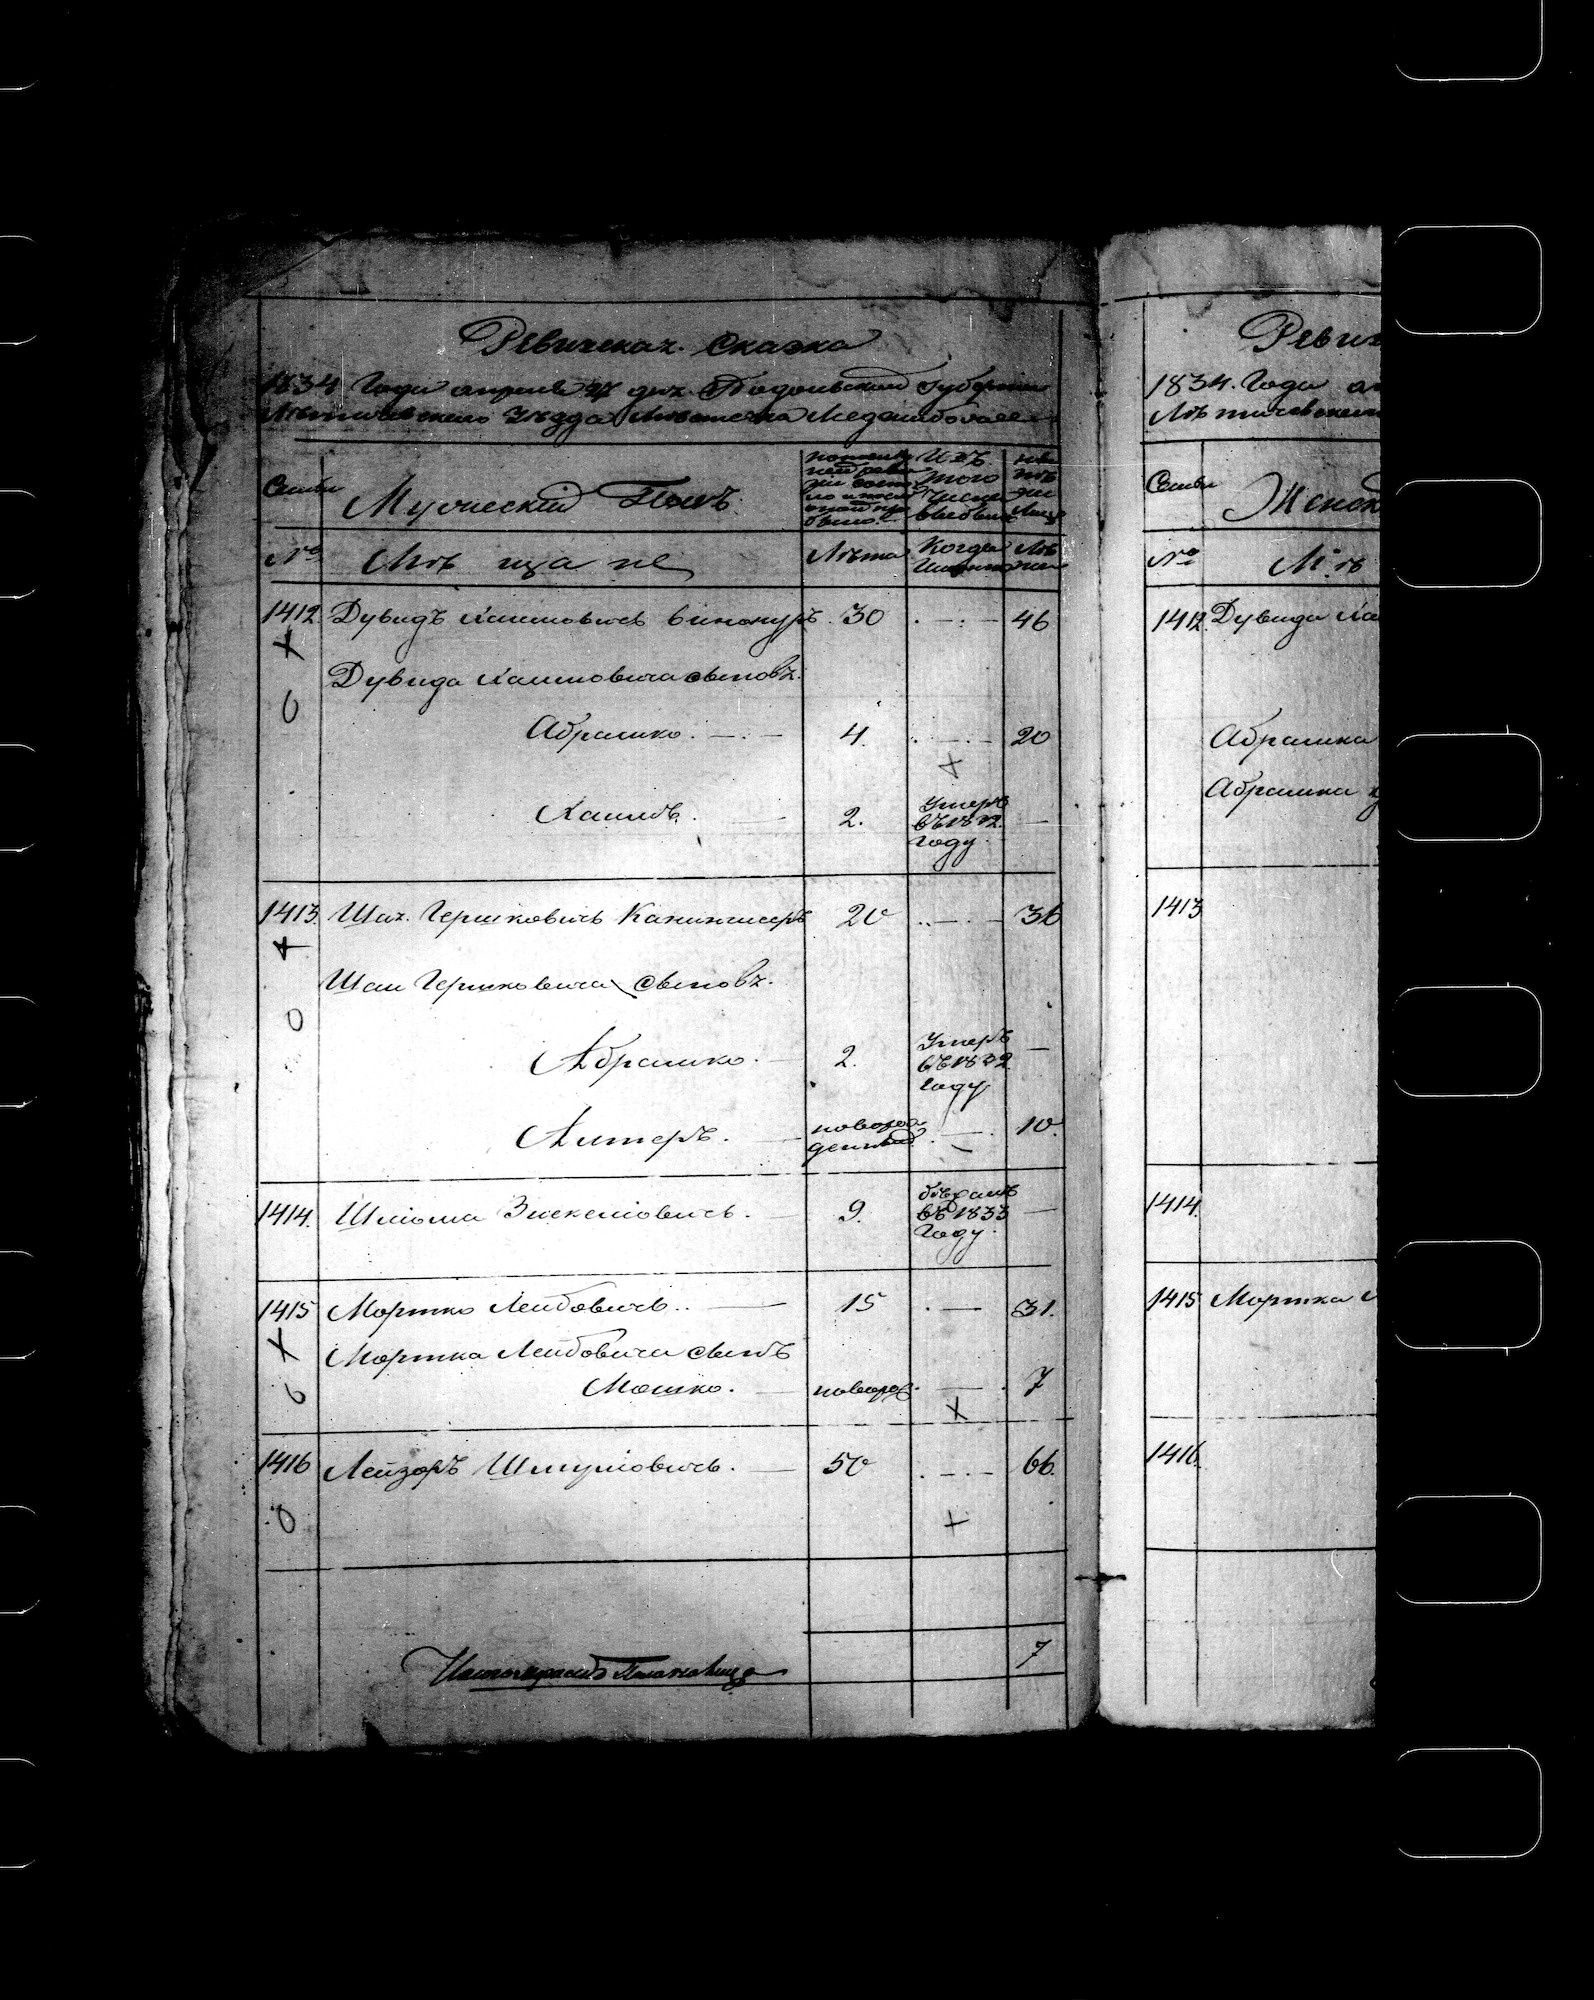 Ревизская Сказка
1834 Года апреля 27 дня Подольской Губернии
Летичевского Уезда Местечка Меджибожа
Семьи
Мужеский Полъ
по последней ревизии состояло и после оной прибыло
Изъ того числа выбыло
ныне на лицо
№
Мѣщане
Лѣта
Когда Именно
Лѣта
1412. Дувидъ Хаимовичъ Винокуръ. 30 46
Дувида Хаимовича сыновья.
Абрамко. 4. 20
Хаимъ. 2. Умеръ въ 1832 году.
1413. Шая Гершковичъ 20 36
Шаи Гершковича сыновья.
Абрамко. 2. Умеръ въ 1832 году
Алтеръ. новорожденный. 10.
1414. Шлиома 9. въ 1833 Году.
1415 Мортко Лейбовичъ. 15 31.
Мортка Лейбовича сынъ
Мошко. новорож. 7
1416 Лейзоръ Шмулиовичъ. 50 66.
7
Ревиз
1834. Года ап
Летичевского
Семьи
Женск
№
Мѣ
1412. Дувида Ха
Абрамка
Абрамка
1413
1414.
1415 Мортка
1416.